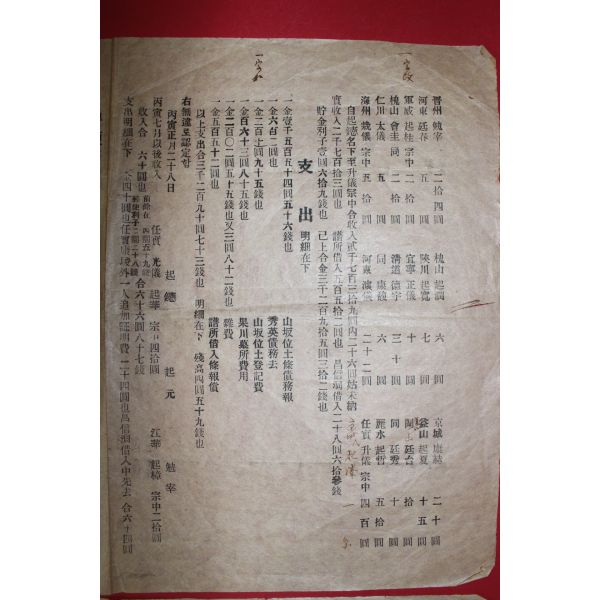 晉州 兢宰 二十四圓 槐山 起潤 六圓 京城 康結 二十圓
河東 廷春 五圓 陜川 起寬 七圓 釜山 起夏 十五圓
軍威 起桂 宗中 二十圓 宜寧 正儀 十圓 廷台 拾圓
槐山 會圭 同 二十圓 清道 德宇 三十圓 同 廷秀 十圓
仁川 太儀 五圓 同 康毅 六圓 麗水 起哲 五拾圓
海州 兢儀 宗中 五拾圓 河東 濱儀 二十二圓 任實 升儀 宗中 四百圓
自起德名下至升儀宗中合收入貳千七百三拾九圓內二十六圓姑未納
實收入二千七百拾三圓也 譜所借入五百五拾二圓也 昌信洞借入二十八圓六拾參錢
貯金利子壹圓六拾九錢也 已上合金三千二百九拾五圓三拾二錢也
支出 明細在下
一金壹千五百五十四圓五十六錢也 山坂位土條債務報
一金六百二圓也 秀英債務去
一金二百十圓九十五錢也 山坂位土登記費
一金百六十三圓八十五錢也 果川墓所費用
一金二百〇二圓五十五錢也又三圓八十二錢也 雜費
一金五百五十二圓也 譜所借入條報償
以上支出合三千二百九十圓七十三錢也 明細在下 殘高四圓五十九錢也
右無違로認定함
丙寅正月二十八日 起鏸 起元 勉宰
丙寅七月以後收入 任實 光儀 起華 宗中四拾圓 江華 起樟 宗中二拾圓
收入合 六十圓也 前餘在 四圓五十九錢 郵便利子 二圓二十八錢 合六十六圓八十七錢
支出明細在下 金四十圓也任實康埈外一人追加証明費 二十四圓也昌信洞借入中先去 合六十四圓